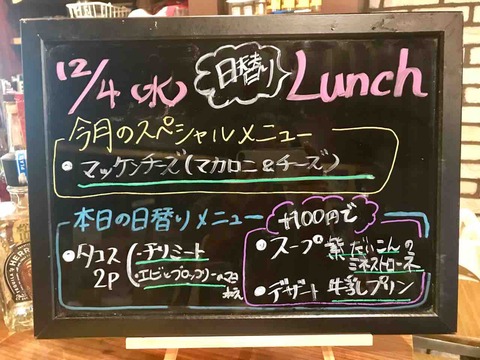 12/4(水) 日替り Lunch
今月のスペシャルメニュー
・マッケンチーズ(マカロニ&チーズ)
本日の日替りメニュー
・タコス 2P
・チリミート
・エビとブロッコリーのマヨ
+100円で
・スープ 葉だいこんの
ミネストローネ
・デザート 牛乳プリン